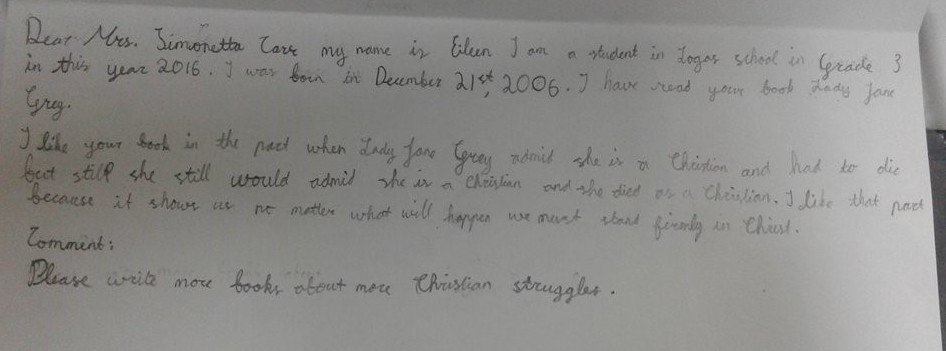 Dear Mrs. Simonetta Carr my name is Eileen I am a student in Logos school in Grade 3
in this year 2016. I was born in December 21st, 2006. I have read your book Lady Jane
Grey.
I like your book in the part when Lady Jane Grey admid she is a Christian and had to die
but still she still would admid she is a Christian and she died as a Christian. I like that part
because it shows us no matter what will happen we must stand firmly in Christ.
Comment:
Please write more books about more Christian struggles.